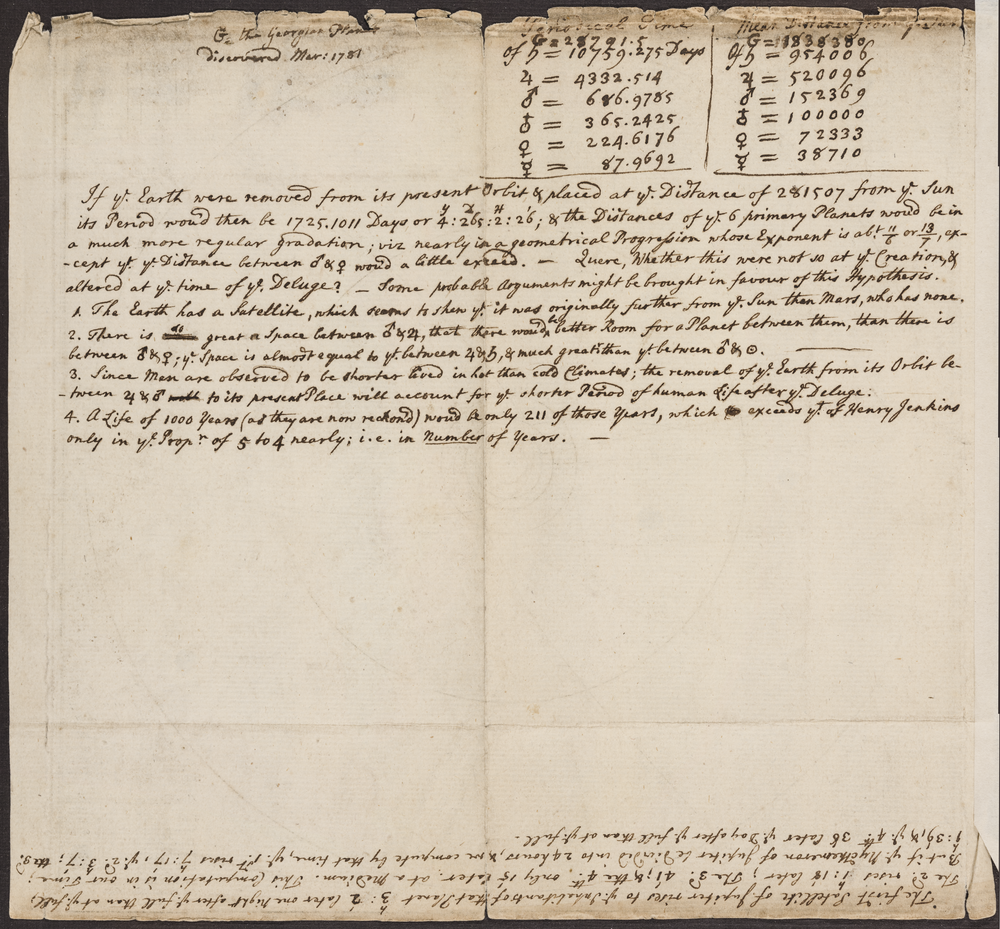 G the Georgian Planet
discovered Mar: 1781
Periodical Time
G = 28791.5
Of ♄ = 10759.275 Days
♃ = 4332.514
♂ = 686.9785
♁ = 365.2425
♀ = 224.6176
☿ = 87.9692
Mean Distance from ye Sun
G = 1838380
Of ♄ = 954006
♃ = 520096
♂ = 152369
♁ = 100000
♀ = 72333
☿ = 38710
If ye Earth were removed from its present Orbit, & placed at ye Distance of 281507 from ye Sun
its Period woud then be 1725.1011 Days or 4y: 265D: 2H: 26'; & the Distances of ye 6 primary Planets woud be in
a much more regular gradation; viz nearly in a geometrical Progression whose Exponent is abt 11/6 or 13/7, ex-
-cept yt ye Distance between ♂ & ♀ woud a little exceed. — Quere, Whether this were not so at ye Creation, &
altered at ye time of ye Deluge? — Some probable Arguments might be brought in favour of this Hypothesis.
1. The Earth has a Satellite, which seems to shew yt it was originally further from ye Sun than Mars, who has none.
2. There is so great a Space between ♂ & ♃, that there woud be better Room for a Planet between them, than there is
between ♂ & ♀; ye Space is almost equal to yt between ♃ & ♄, & much greater than yt between ♂ & ☉. —
3. Since Men are observed to be shorter lived in hot than cold Climates; the removal of ye Earth from its Orbit be-
-tween ♃ & ♂ to its present Place will account for ye shorter Period of human Life after ye Deluge.
4. A Life of 1000 Years (as they are now reckond) woud be only 211 of those Years, which exceeds yt of Henry Jenkins
only in ye Propn of 5 to 4 nearly; i.e. in Number of Years. —
The first Satellite of Jupiter rises to ye Inhabitants of that Planet 3h: 2' later one night after ye full than at ye full
The 2d rises 1h: 18' later; The 3d 41', & the 4th only 15' later, at a Medium. This Computation is in our Time;
But if ye Nycthemeron of Jupiter be Divided into 24 hours, & we compute by that time, ye 1st rises 7h: 17', ye 2d 3h: 7'; the 3d
1h: 39', & ye 4th 36' later ye Day after ye full than at ye full.